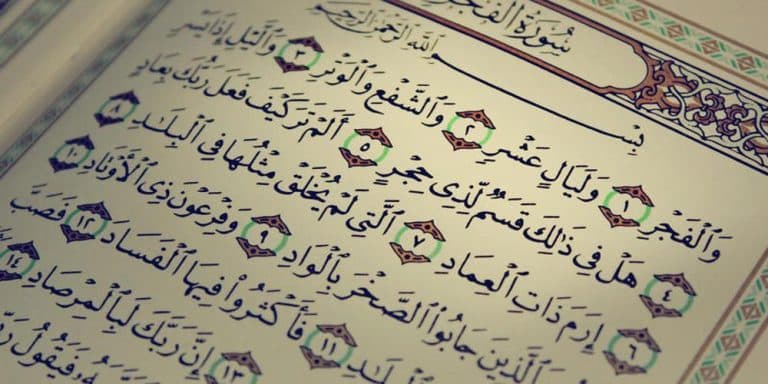 سُورَةُ الفَجْرِ
بِسْمِ ٱللَّهِ ٱلرَّحْمَٰنِ ٱلرَّحِيمِ
وَٱلْفَجْرِ ١ وَلَيَالٍ عَشْرٍ ٢ وَٱلشَّفْعِ وَٱلْوَتْرِ ٣ وَٱلَّيْلِ إِذَا يَسْرِ
٤ هَلْ فِى ذَٰلِكَ قَسَمٌ لِّذِى حِجْرٍ ٥ أَلَمْ تَرَ كَيْفَ فَعَلَ رَبُّكَ بِعَادٍ
٦ إِرَمَ ذَاتِ ٱلْعِمَادِ ٧ ٱلَّتِى لَمْ يُخْلَقْ مِثْلُهَا فِى ٱلْبِلَٰدِ ٨
ٱلَّذِينَ جَابُوا۟ ٱلصَّخْرَ بِٱلْوَادِ ٩ وَفِرْعَوْنَ ذِى ٱلْأَوْتَادِ ١٠
ٱلْبِلَٰدِ ١١ فَأَكْثَرُوا۟ فِيهَا ٱلْفَسَادَ ١٢ فَصَبَّ
١٣ إِنَّ رَبَّكَ لَبِٱلْمِرْصَادِ ١٤
فَيَقُولُ